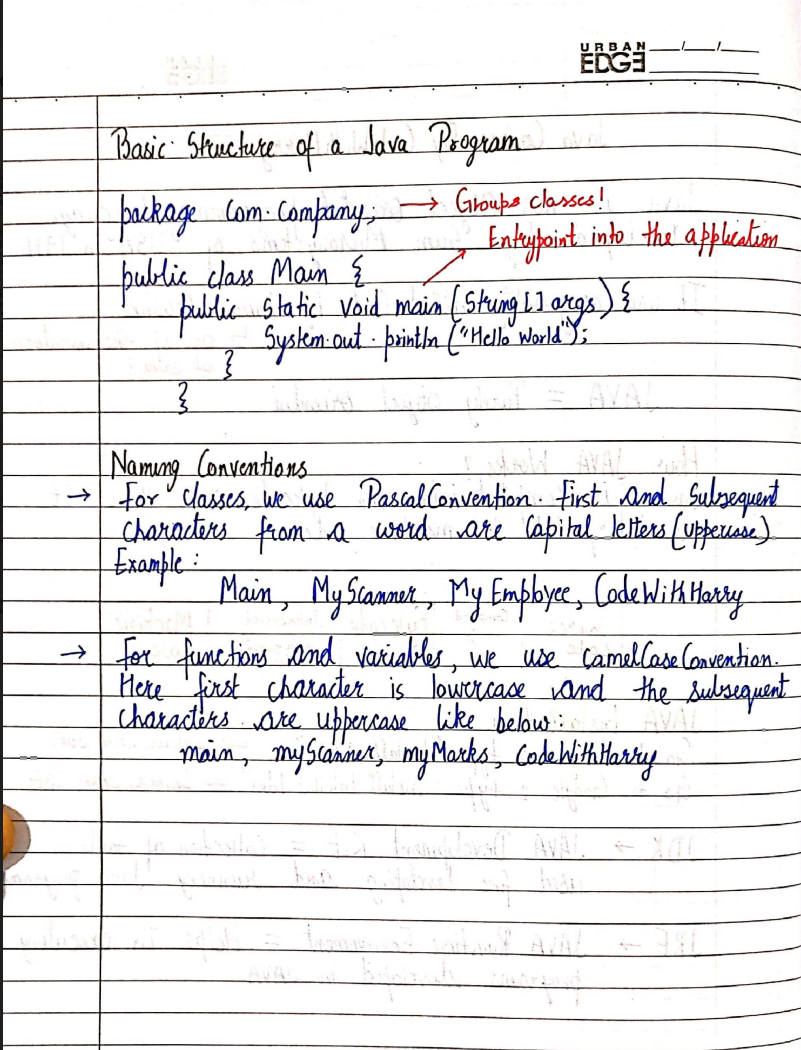 URBAN
EDGE
Basic Structure of a Java Program
package Com.Company; → Groups classes!
Entrypoint into the application
public class Main {
public static void main (String [] args) {
System.out.println ("Hello World");
}
}
Naming Conventions
→ for classes, we use PascalConvention. first and Subsequent
characters from a word are Capital letters (uppercase)
Example :
Main, MyScanner, MyEmployee, CodeWithHarry
→ for functions and variables, we use CamelCaseConvention.
Here first character is lowercase and the subsequent
characters are uppercase like below:
main, myScanner, myMarks, CodeWithHarry